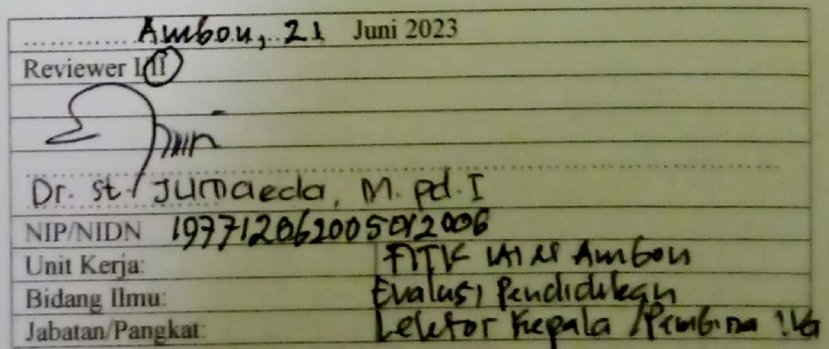 ............ Ambon, 21 Juni 2023
Reviewer I/II
Dr. St. Jumaeda, M. Pd. I
NIP/NIDN 197712062005012006
Unit Kerja: FITK IAIN Ambon
Bidang Ilmu: Evaluasi Pendidikan
Jabatan/Pangkat: Lektor Kepala / Pembina